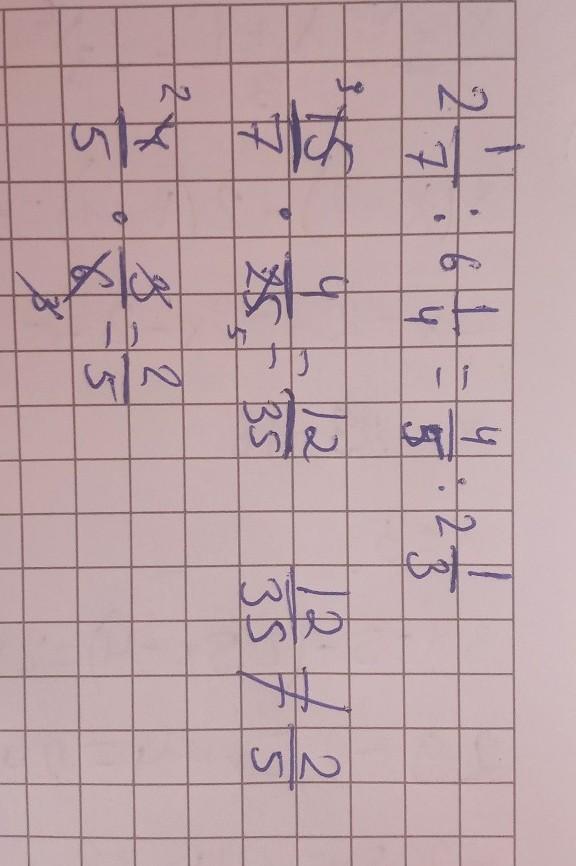 2 1/7 : 6 1/4 = 4/5 : 2 1/3
15/7 · 4/25 = 12/35 12/35 ≠ 2/5
4/5 · 3/6 = 2/5